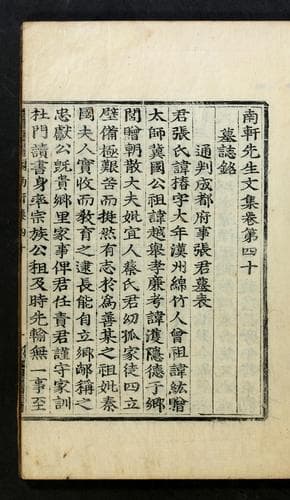 南軒先生文集卷第四十
墓誌銘
通判成都府事張君墓表
君張氏諱椿字大年漢州綿竹人曾祖諱紘贈
太師冀國公祖諱越舉孝廉考諱濩隱德于鄉
閭贈朝散大夫妣宜人蔡氏君幼孤家徒四立
壁備極艱苦而挺然有志於為善某之祖妣秦
國夫人實收而敎育之逮長能自立鄉鄰稱之
忠獻公旣貴鄉里家事俾君任責君謹守家訓
杜門讀書身率宗族公租及時先輸無一事至